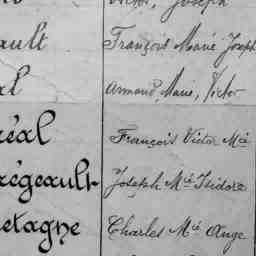 Joseph
ault François Marie Joseph
al Armand, Marie, Victor
réal François Victor Mie
régeault Joseph Mie Isidore
retagne Charles Mie Ange